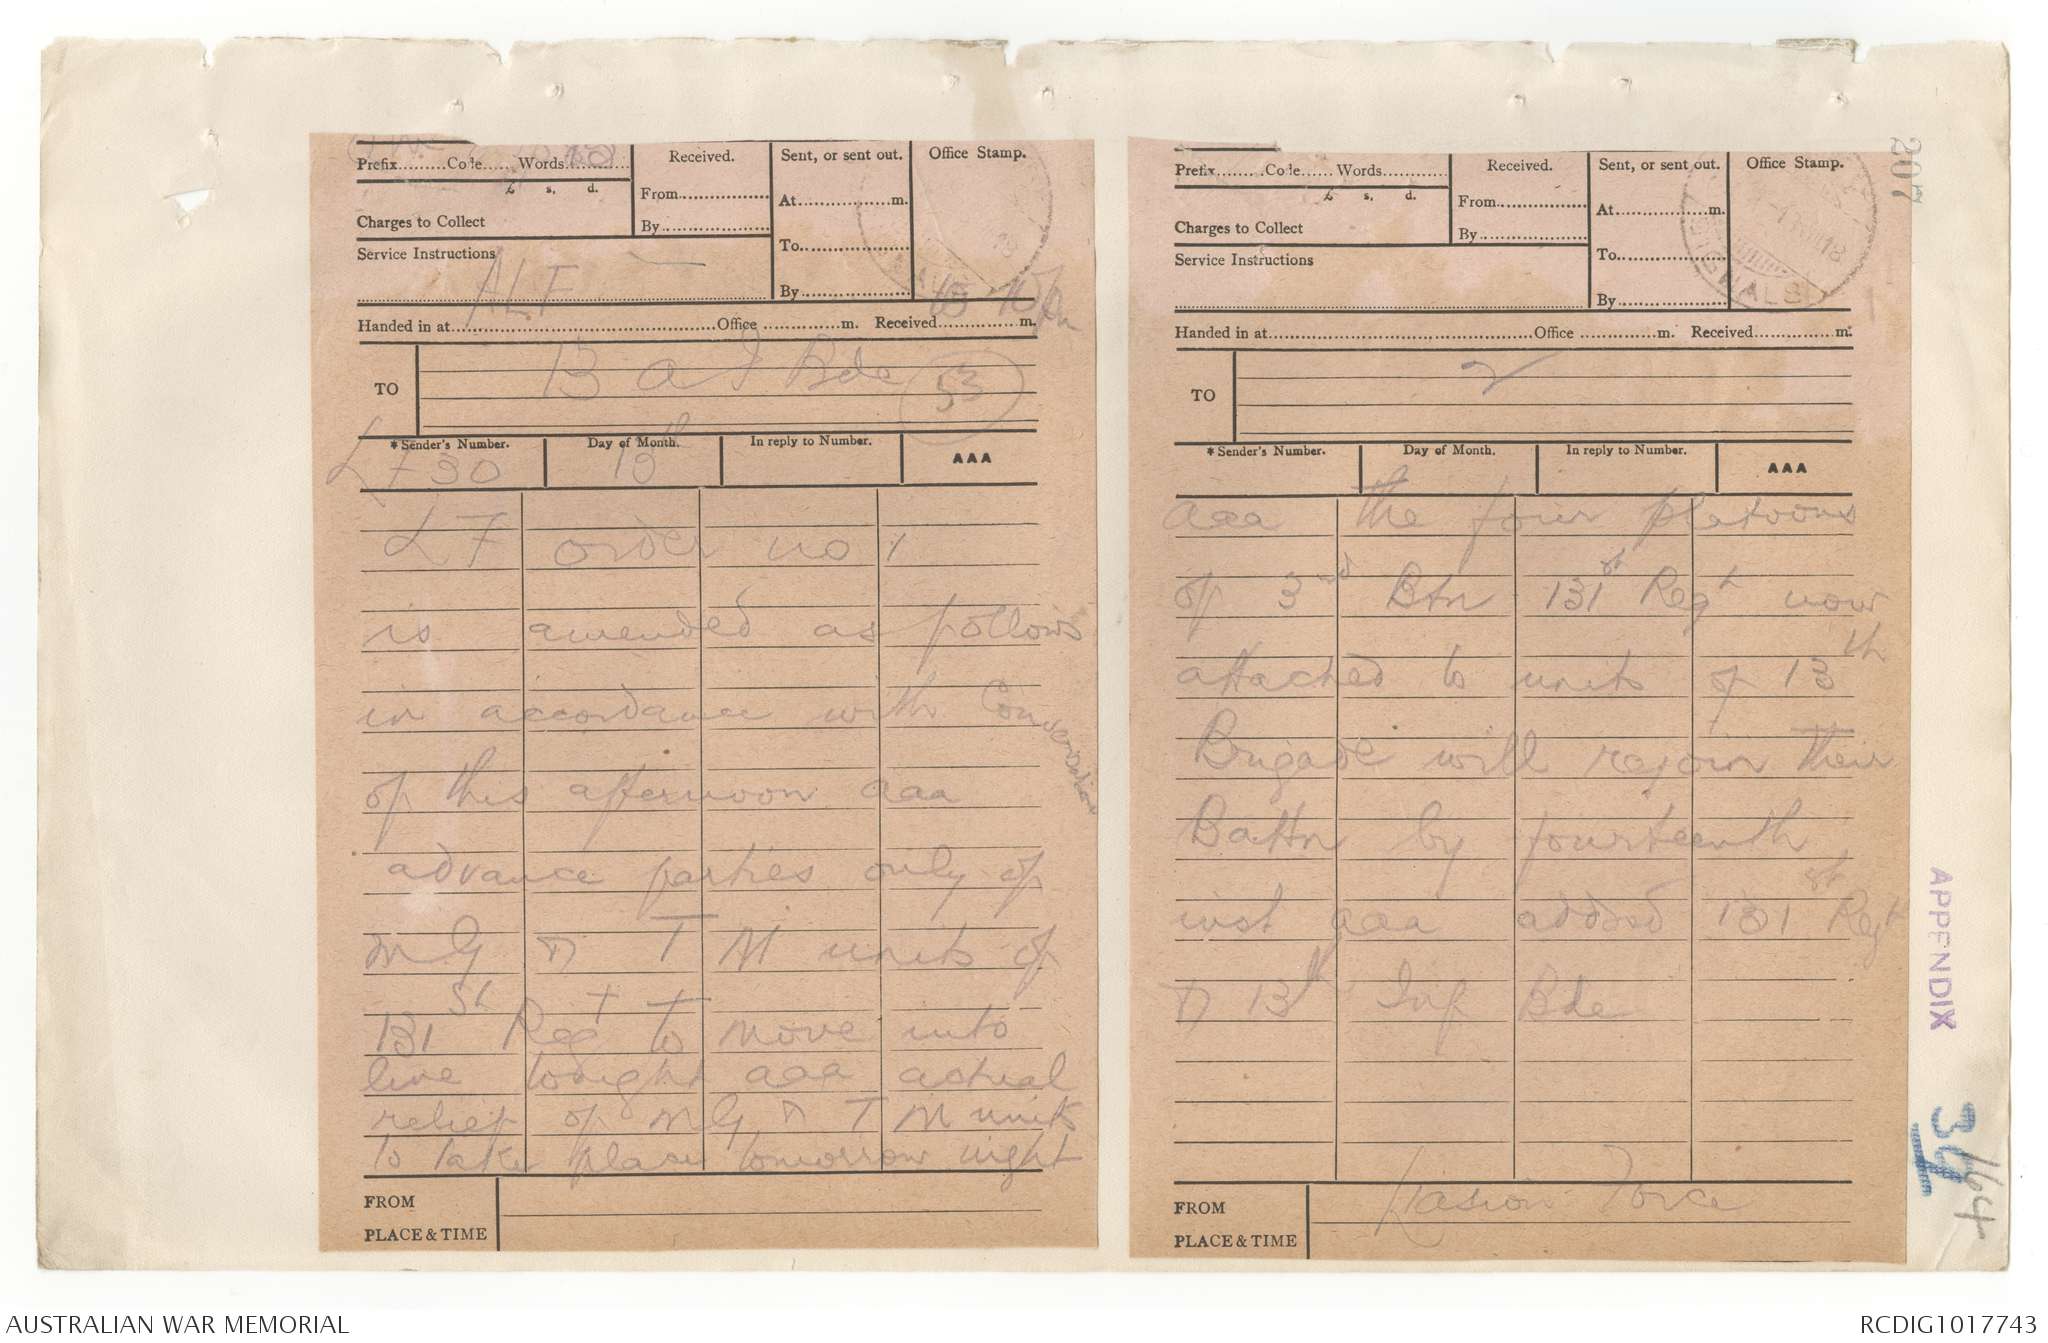 Prefix.........Code......Words 
Received.
Sent, or sent out.
Office Stamp.
£ s. d.
From
At...............m.
Charges to Collect
By
Service Instructions
ALF
To
By
10 pm
Handed in at...............Office ...............m. Received...............m.
TO
13 a I Bde
53
*Sender's Number.
Day of Month.
In reply to Number.
AAA
LF 30
13th
LF order no 1
is amended as follows
in accordance with Conversation
of this afternoon aaa
advance parties only of
M G & T M units of
131st Regt to move into
line tonight aaa actual
relief of M G & T M units
to take place tomorrow night
FROM
PLACE & TIME
Prefix.........Code......Words
Received.
Sent, or sent out.
Office Stamp.
£ s. d.
From
At...............m.
Charges to Collect
By
Service Instructions
To
By
SIGNALS
Handed in at...............Office ...............m. Received...............m.
TO
2
*Sender's Number.
Day of Month.
In reply to Number.
AAA
aaa the four platoons
of 3rd Btn 131st Regt now
attached to units of 13th
Brigade will rejoin their
Battn by fourteenth
inst aaa added 131st Regt
& 13th Inf Bde
FROM
Liaison Force
PLACE & TIME
207
APPENDIX
34
164
AUSTRALIAN WAR MEMORIAL
RCDIG1017743